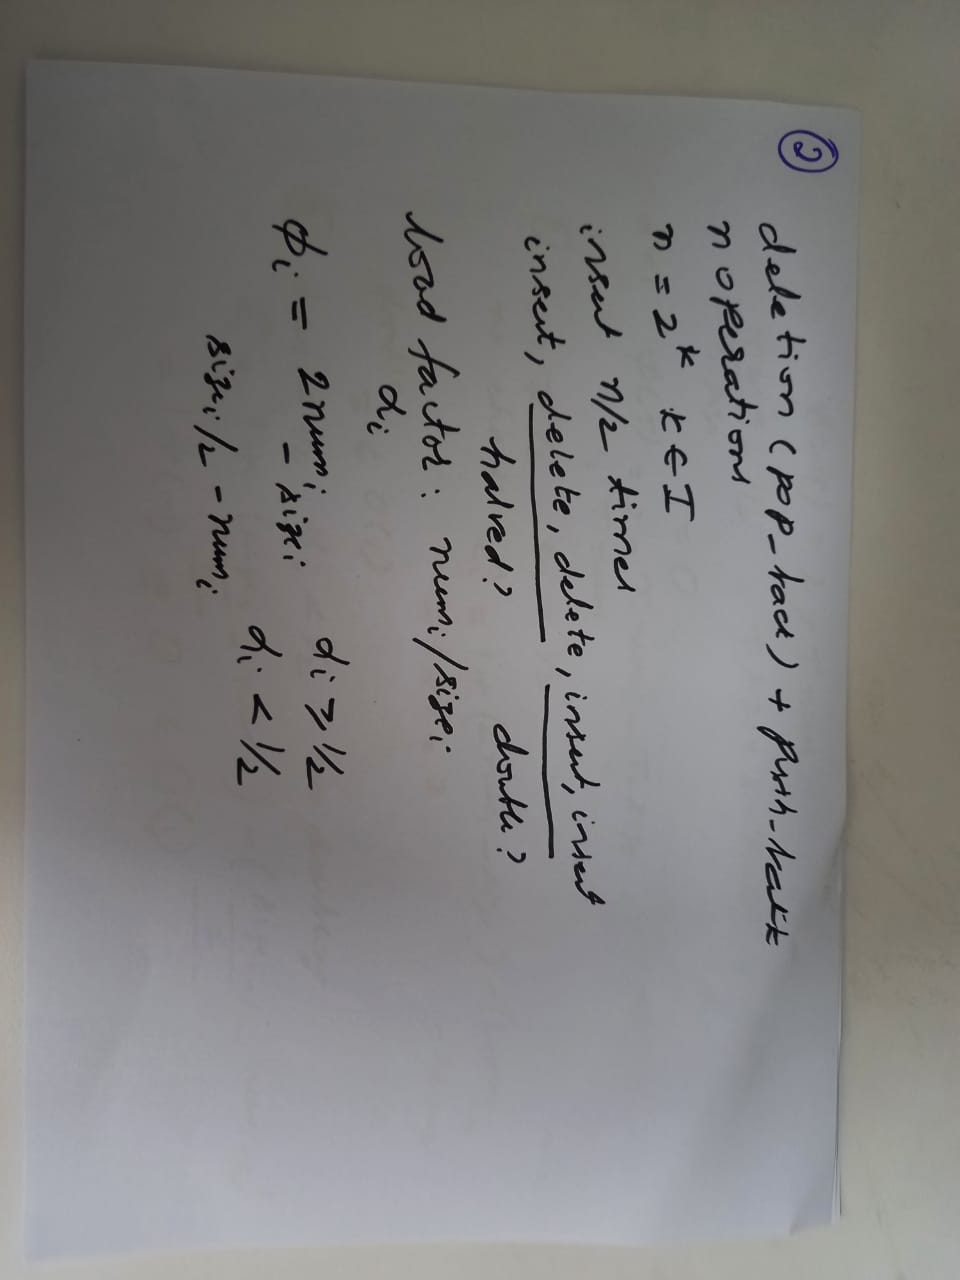 ②
deletion (pop_back) + push-back
n operations
n = 2^k k ∈ I
insert n/2 times
insert, delete, delete, insert, insert
halved? double?
load factor: num_i/size_i
α_i
ϕ_i = 2num_i - size_i α_i ≥ 1/2
size_i/2 - num_i α_i < 1/2